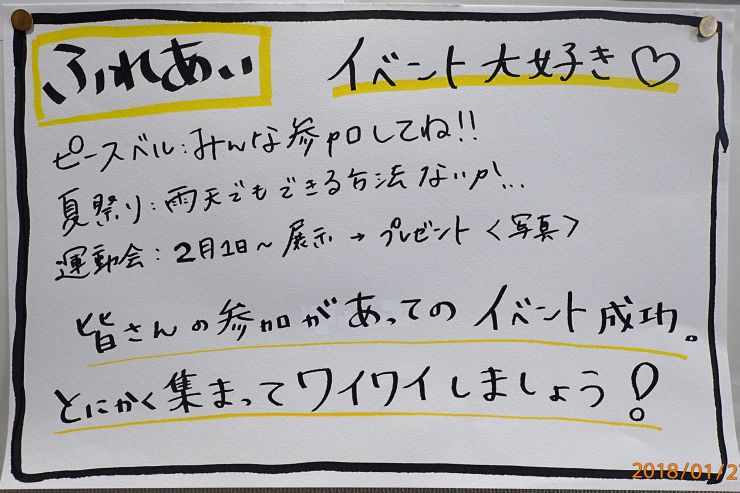 ふれあい イベント大好き♡
ピースベル:みんな参加してね!!
夏祭り:雨天でもできる方法ないか...
運動会:2月1日~展示→プレゼント<写真>
皆さんの参加があってのイベント成功。
とにかく集まってワイワイしましょう!
2018/01/2